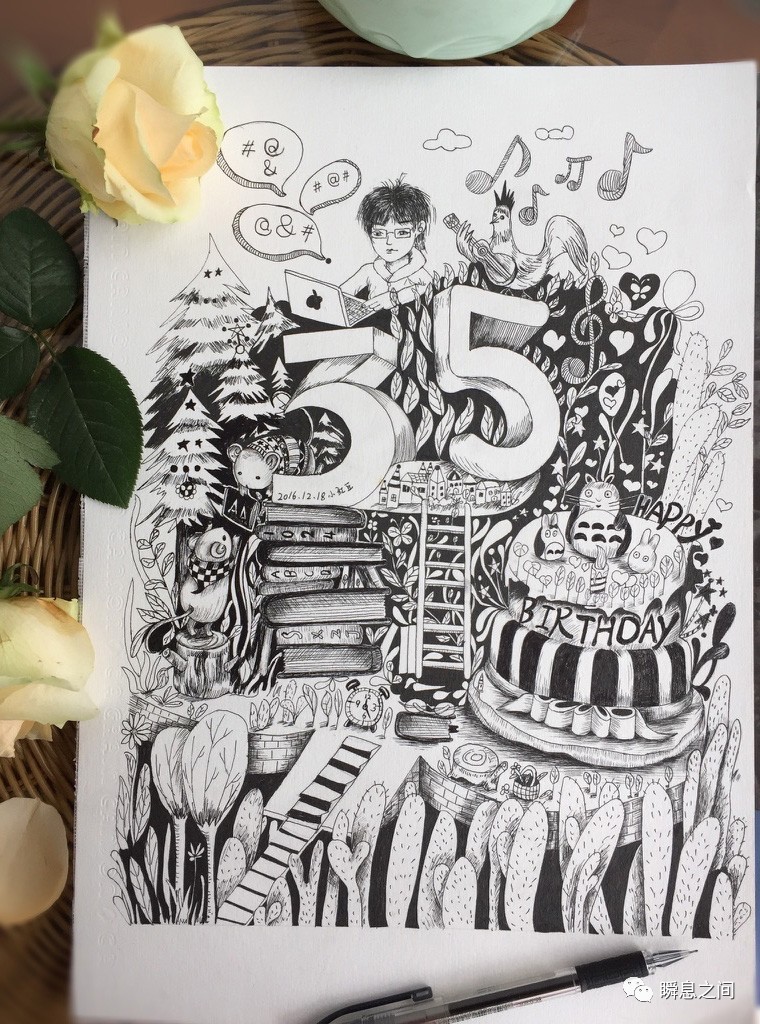 # @
&
# @ #
@ & #
35
2016.12.18 小红豆
1024
HAPPY
BIRTHDAY
瞬息之间